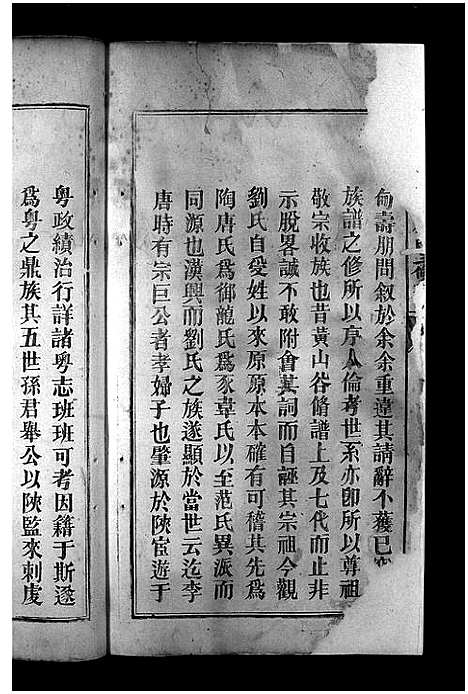 壽朋問敘於余余重違其請辭不獲已
族譜之修所以序人倫考世系亦卽所以尊祖
敬宗收族也昔黃山谷脩譜上及七代而止非
示脫畧誠不敢附會其詞而自誣其宗祖今觀
劉氏自受姓以來原原本本確有可稽其先爲
陶唐氏爲御龍氏爲豕韋氏以至范氏異派而
同源也漢興而劉氏之族遂顯於當世云迄李
唐時有宗巨公者孝婦子也肇源於陝宦遊于
粵政績治行詳諸粵志班班可考因籍于斯遂
爲粵之鼎族其五世孫君舉公以陝監來刺虔